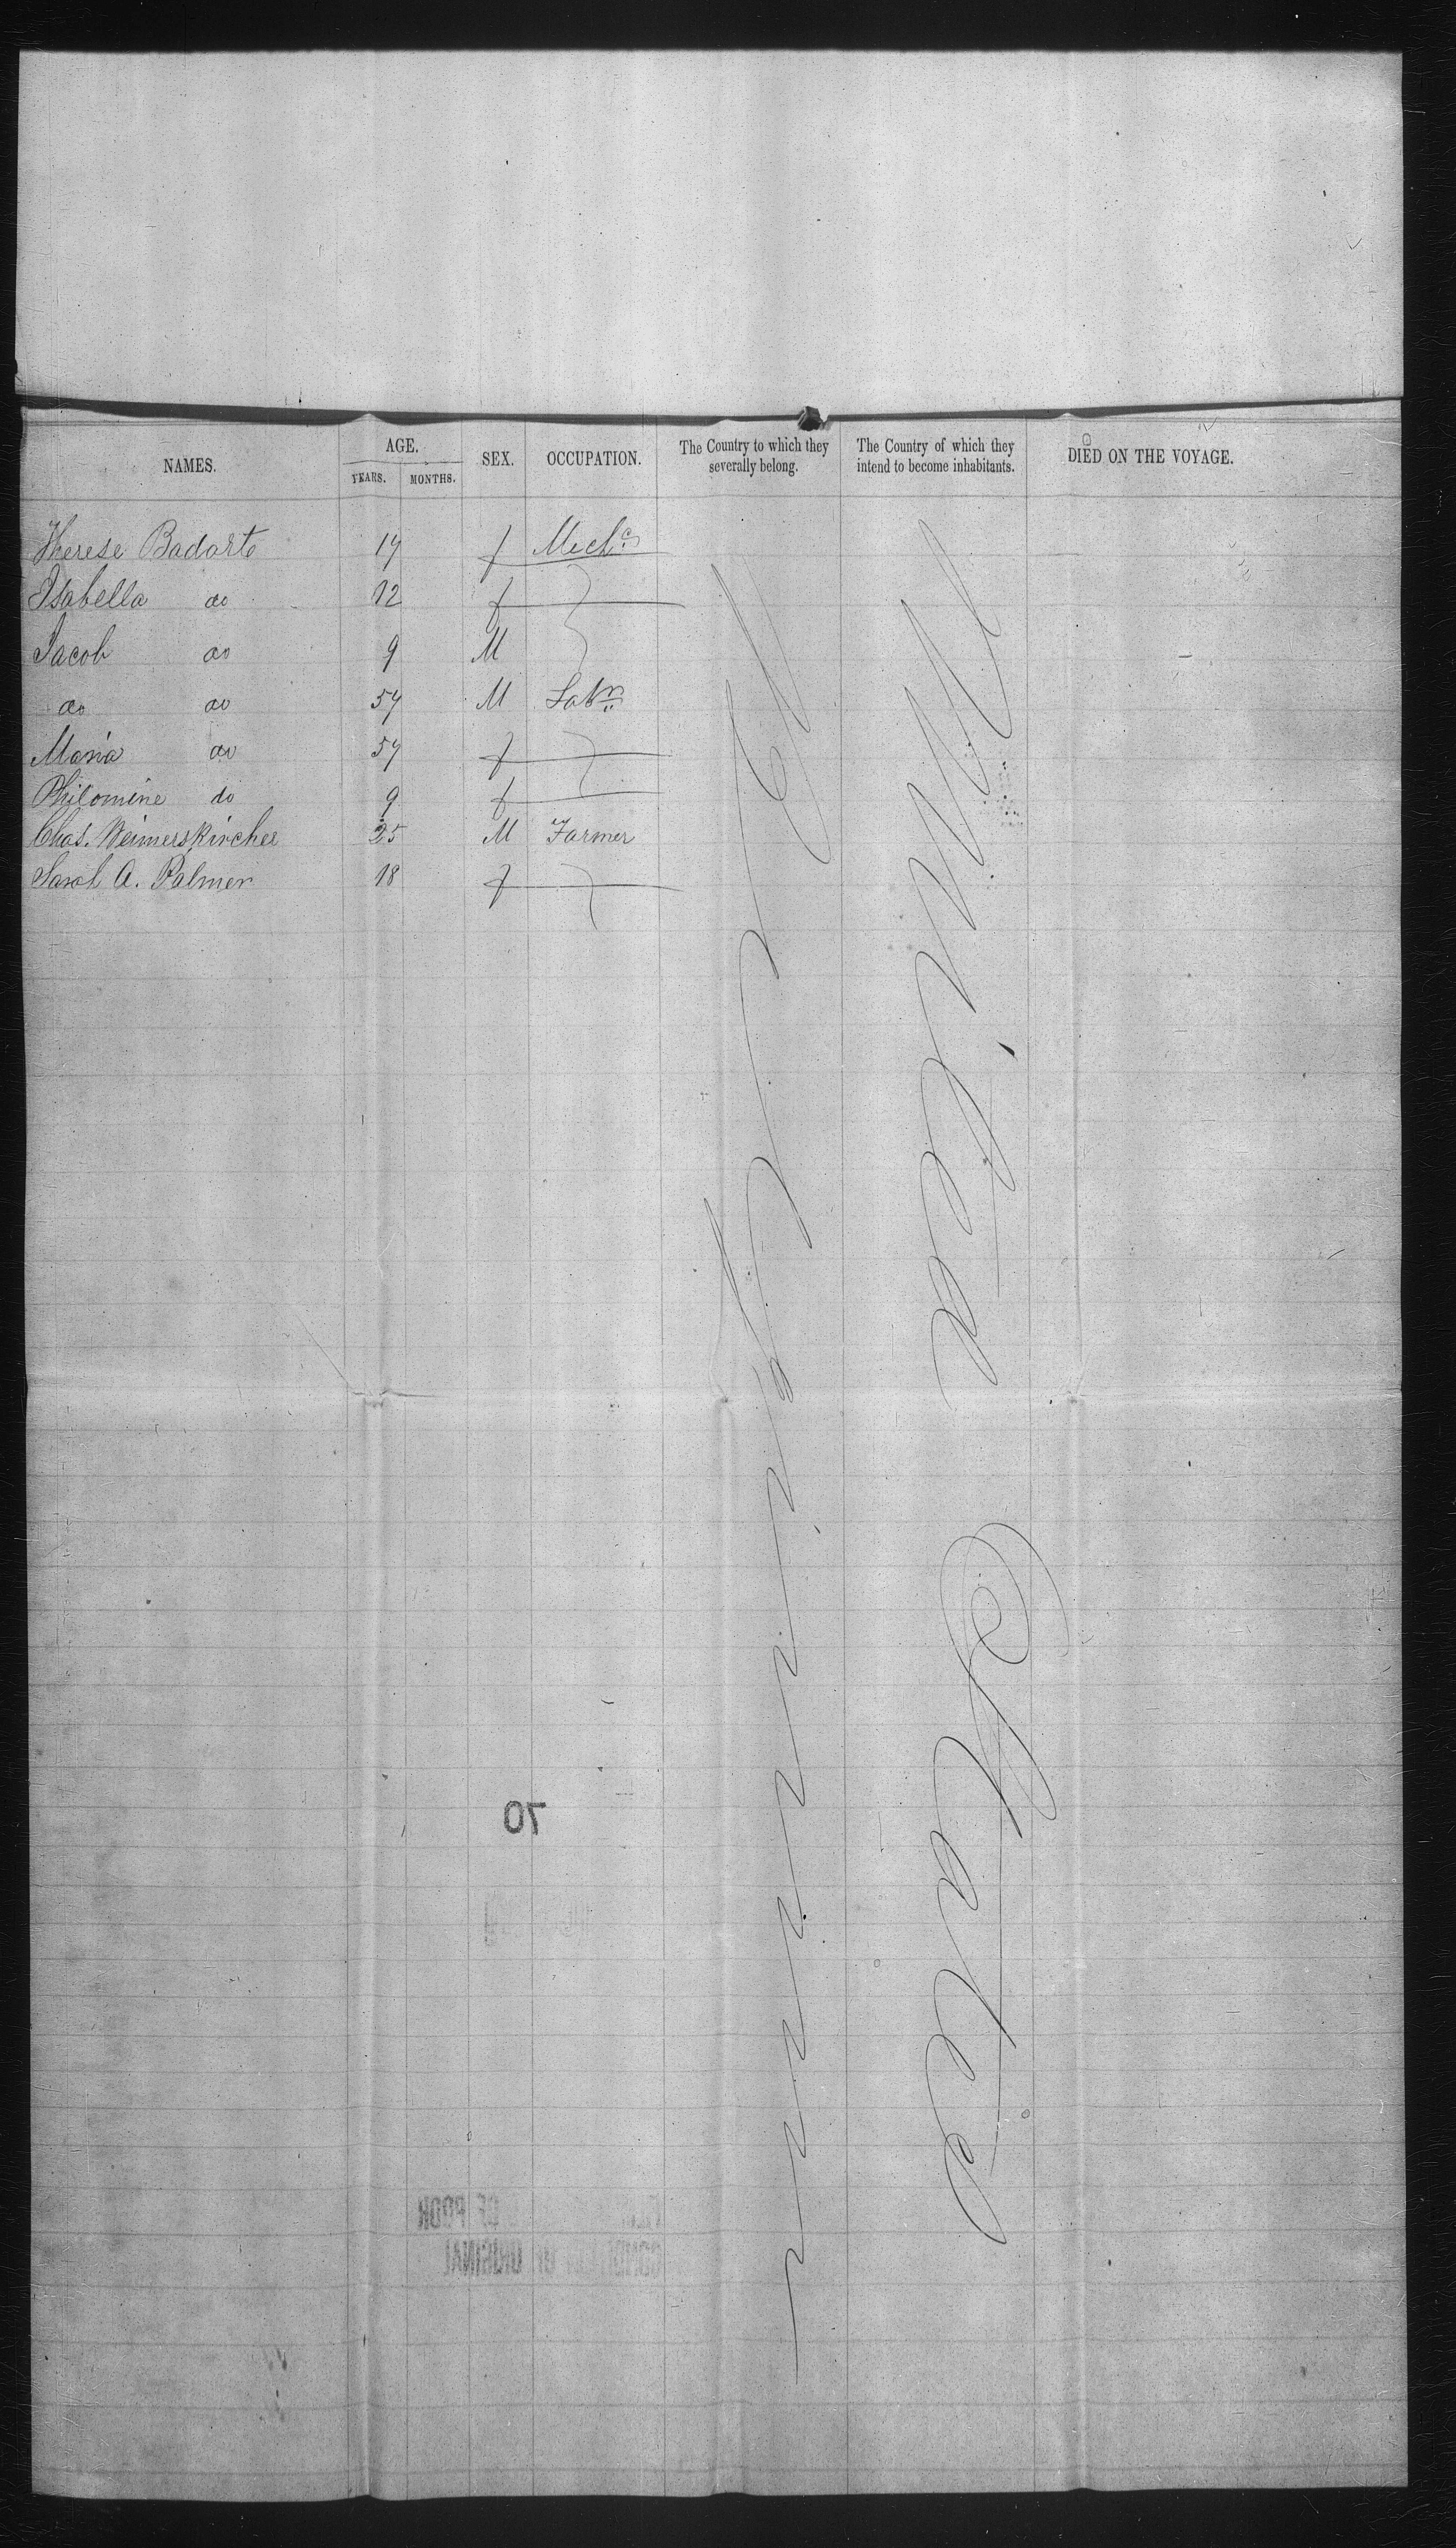 NAMES. AGE. SEX. OCCUPATION. The Country to which they severally belong. The Country of which they intend to become inhabitants. DIED ON THE VOYAGE.
YEARS. MONTHS.
Therese Badarto 17 f Mechc
Isabella do 12 f
Jacob do 9 M
do do 57 M Labr
Maria do 57 f
Philomine do 9 f
Chas. Weimerskircher 25 M Farmer
Sarah A. Palmer 18 f
Belgium
United States
70
OF POOR
CONDITION OF ORIGINAL